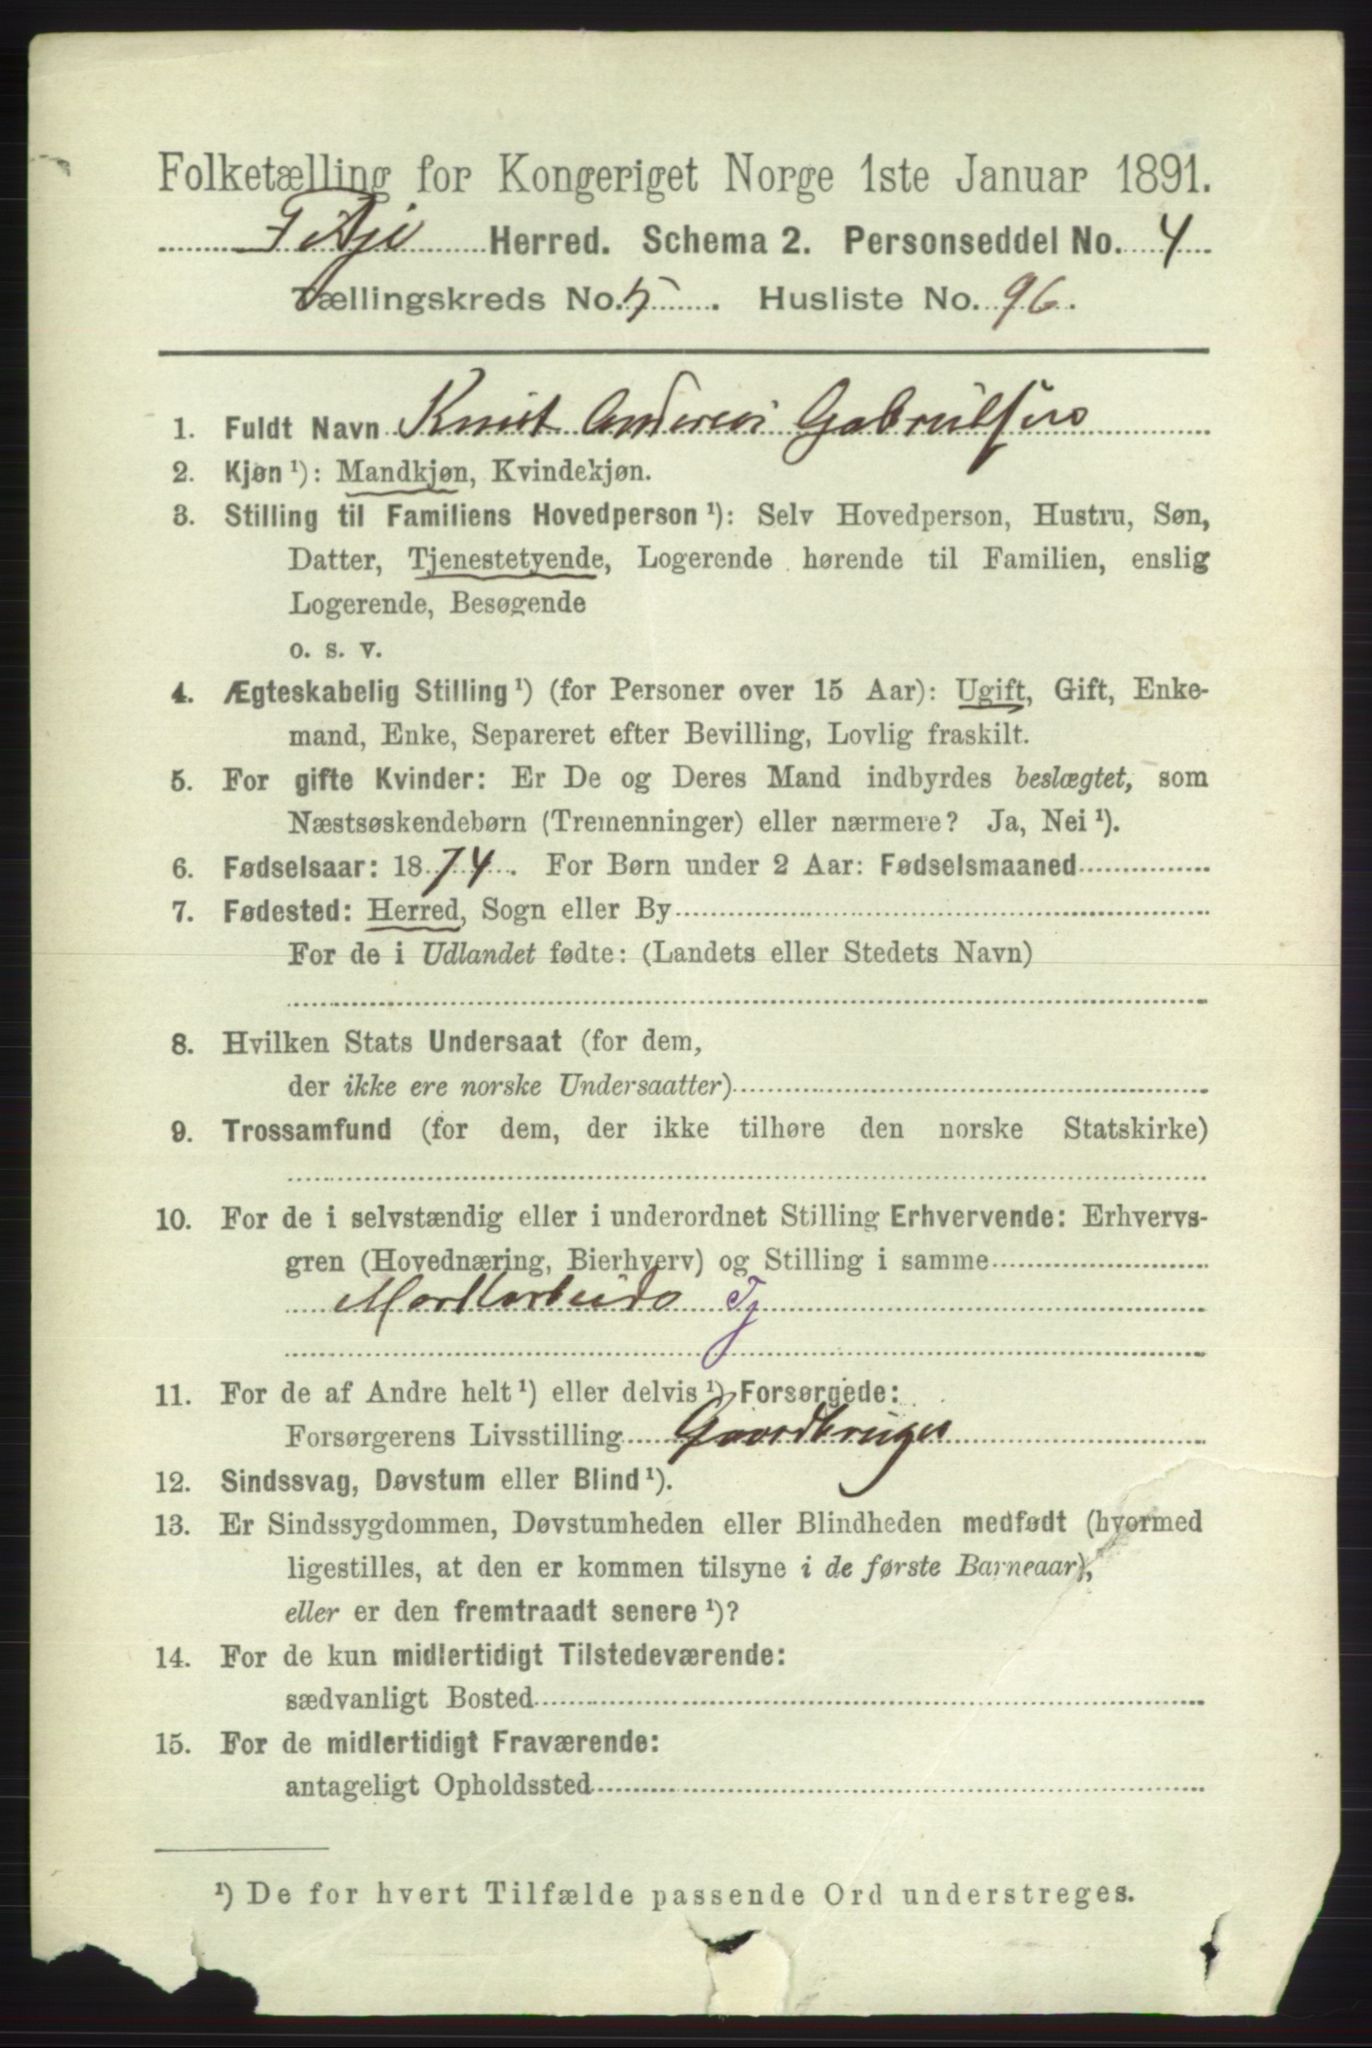 Folketælling for Kongeriget Norge 1ste Januar 1891.
Fitje Herred. Schema 2. Personseddel No. 4
Tællingskreds No. 5. Husliste No. 96.
1. Fuldt Navn Knut Andreas Gabrielsen
2. Kjøn ¹): Mandkjøn, Kvindekjøn.
3. Stilling til Familiens Hovedperson ¹): Selv Hovedperson, Hustru, Søn,
Datter, Tjenestetyende, Logerende hørende til Familien, enslig
Logerende, Besøgende
o. s. v.
4. Ægteskabelig Stilling ¹) (for Personer over 15 Aar): Ugift, Gift, Enke-
mand, Enke, Separeret efter Bevilling, Lovlig fraskilt.
5. For gifte Kvinder: Er De og Deres Mand indbyrdes beslægtet, som
Næstsøskendebørn (Tremenninger) eller nærmere? Ja, Nei ¹).
6. Fødselsaar: 1874. For Børn under 2 Aar: Fødselsmaaned
7. Fødested: Herred, Sogn eller By
For de i Udlandet fødte: (Landets eller Stedets Navn)
8. Hvilken Stats Undersaat (for dem,
der ikke ere norske Undersaatter)
9. Trossamfund (for dem, der ikke tilhøre den norske Statskirke)
10. For de i selvstændig eller i underordnet Stilling Erhvervende: Erhvervs-
gren (Hovednæring, Bierhverv) og Stilling i samme
Tj
11. For de af Andre helt ¹) eller delvis ¹) Forsørgede:
Forsørgerens Livsstilling Gaardbruger
12. Sindssvag, Døvstum eller Blind ¹).
13. Er Sindssygdommen, Døvstumheden eller Blindheden medfødt (hvormed
ligestilles, at den er kommen tilsyne i de første Barneaar),
eller er den fremtraadt senere ¹)?
14. For de kun midlertidigt Tilstedeværende:
sædvanligt Bosted
15. For de midlertidigt Fraværende:
antageligt Opholdssted
¹) De for hvert Tilfælde passende Ord understreges.